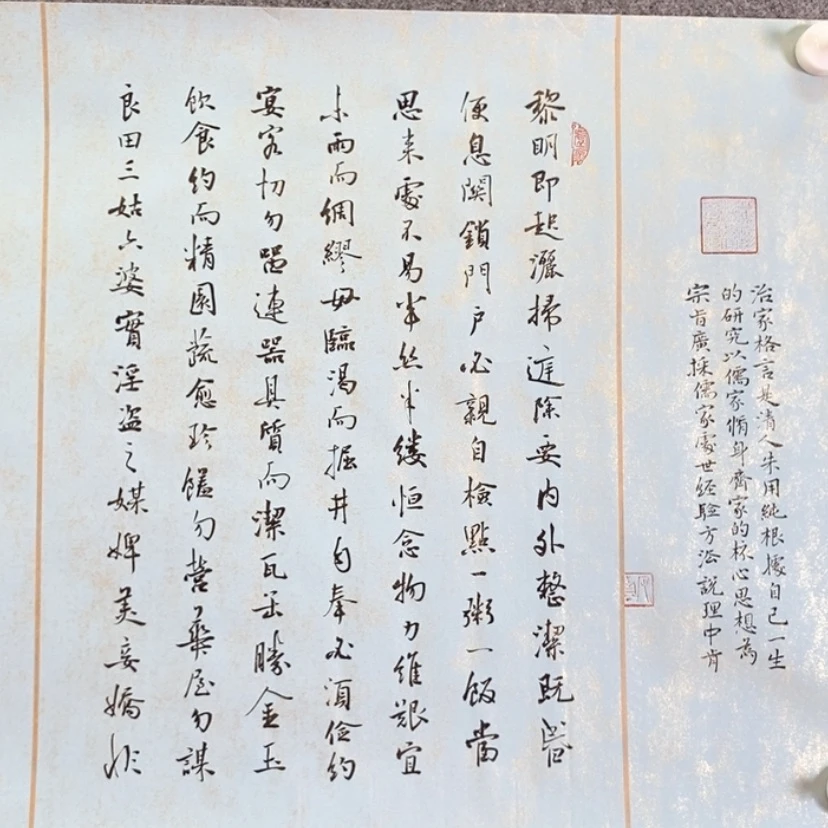 治家格言是清人朱用純根據自己一生
的研究以儒家脩身齊家的核心思想為
宗旨廣採儒家處世經驗方法説理中肯
黎明即起灑掃庭除要内外整潔既昏
便息關鎖門户必親自檢點一粥一飯當
思来處不易半絲半縷恒念物力維艱宜
未雨而綢繆毋臨渴而掘井自奉必須儉約
宴客切勿留連器具質而潔瓦缶勝金玉
飲食約而精園蔬愈珍饈勿營華屋勿謀
良田三姑六婆實淫盗之媒婢美妾嬌非